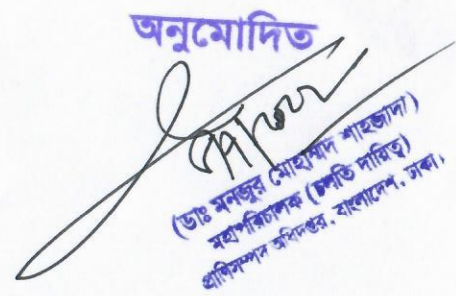 অনুমোদিত
(ডাঃ মনজুর মোহাম্মদ শাহজাদা)
মহাপরিচালক (চলতি দায়িত্ব)
প্রাণিসম্পদ অধিদপ্তর, বাংলাদেশ, ঢাকা।